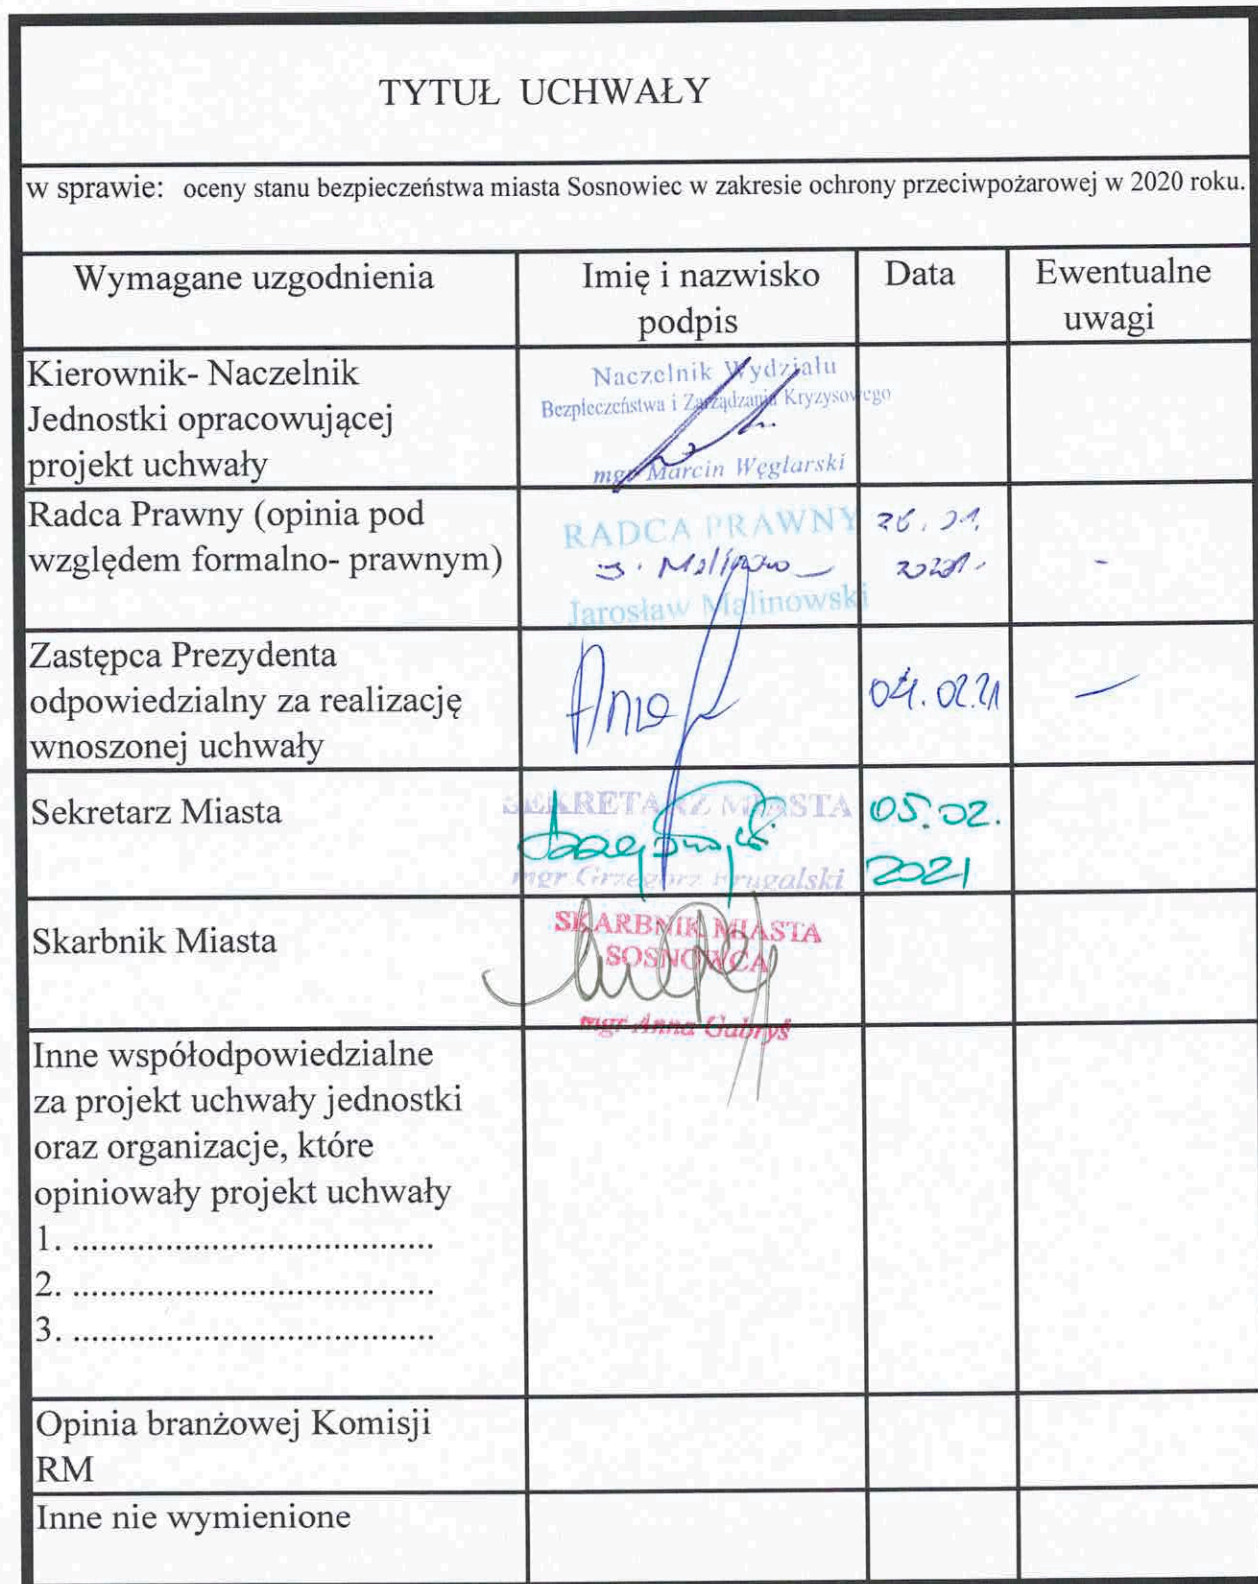 TYTUŁ UCHWAŁY
w sprawie: oceny stanu bezpieczeństwa miasta Sosnowiec w zakresie ochrony przeciwpożarowej w 2020 roku.
Wymagane uzgodnienia
Imię i nazwisko
podpis
Data
Ewentualne
uwagi
Kierownik- Naczelnik
Jednostki opracowującej
projekt uchwały
Naczelnik Wydziału
Bezpieczeństwa i Zarządzania Kryzysowego
mgr Marcin Węglarski
Radca Prawny (opinia pod
względem formalno- prawnym)
RADCA PRAWNY
Jarosław Malinowski
26.01.
2021.
-
Zastępca Prezydenta
odpowiedzialny za realizację
wnoszonej uchwały
04.02.21
—
Sekretarz Miasta
SEKRETARZ MIASTA
mgr Grzegorz
05.02.
2021
Skarbnik Miasta
SKARBNIK MIASTA
SOSNOWCA
mgr Anna Gabryś
Inne współodpowiedzialne
za projekt uchwały jednostki
oraz organizacje, które
opiniowały projekt uchwały
1. .......................................
2. .......................................
3. .......................................
Opinia branżowej Komisji
RM
Inne nie wymienione